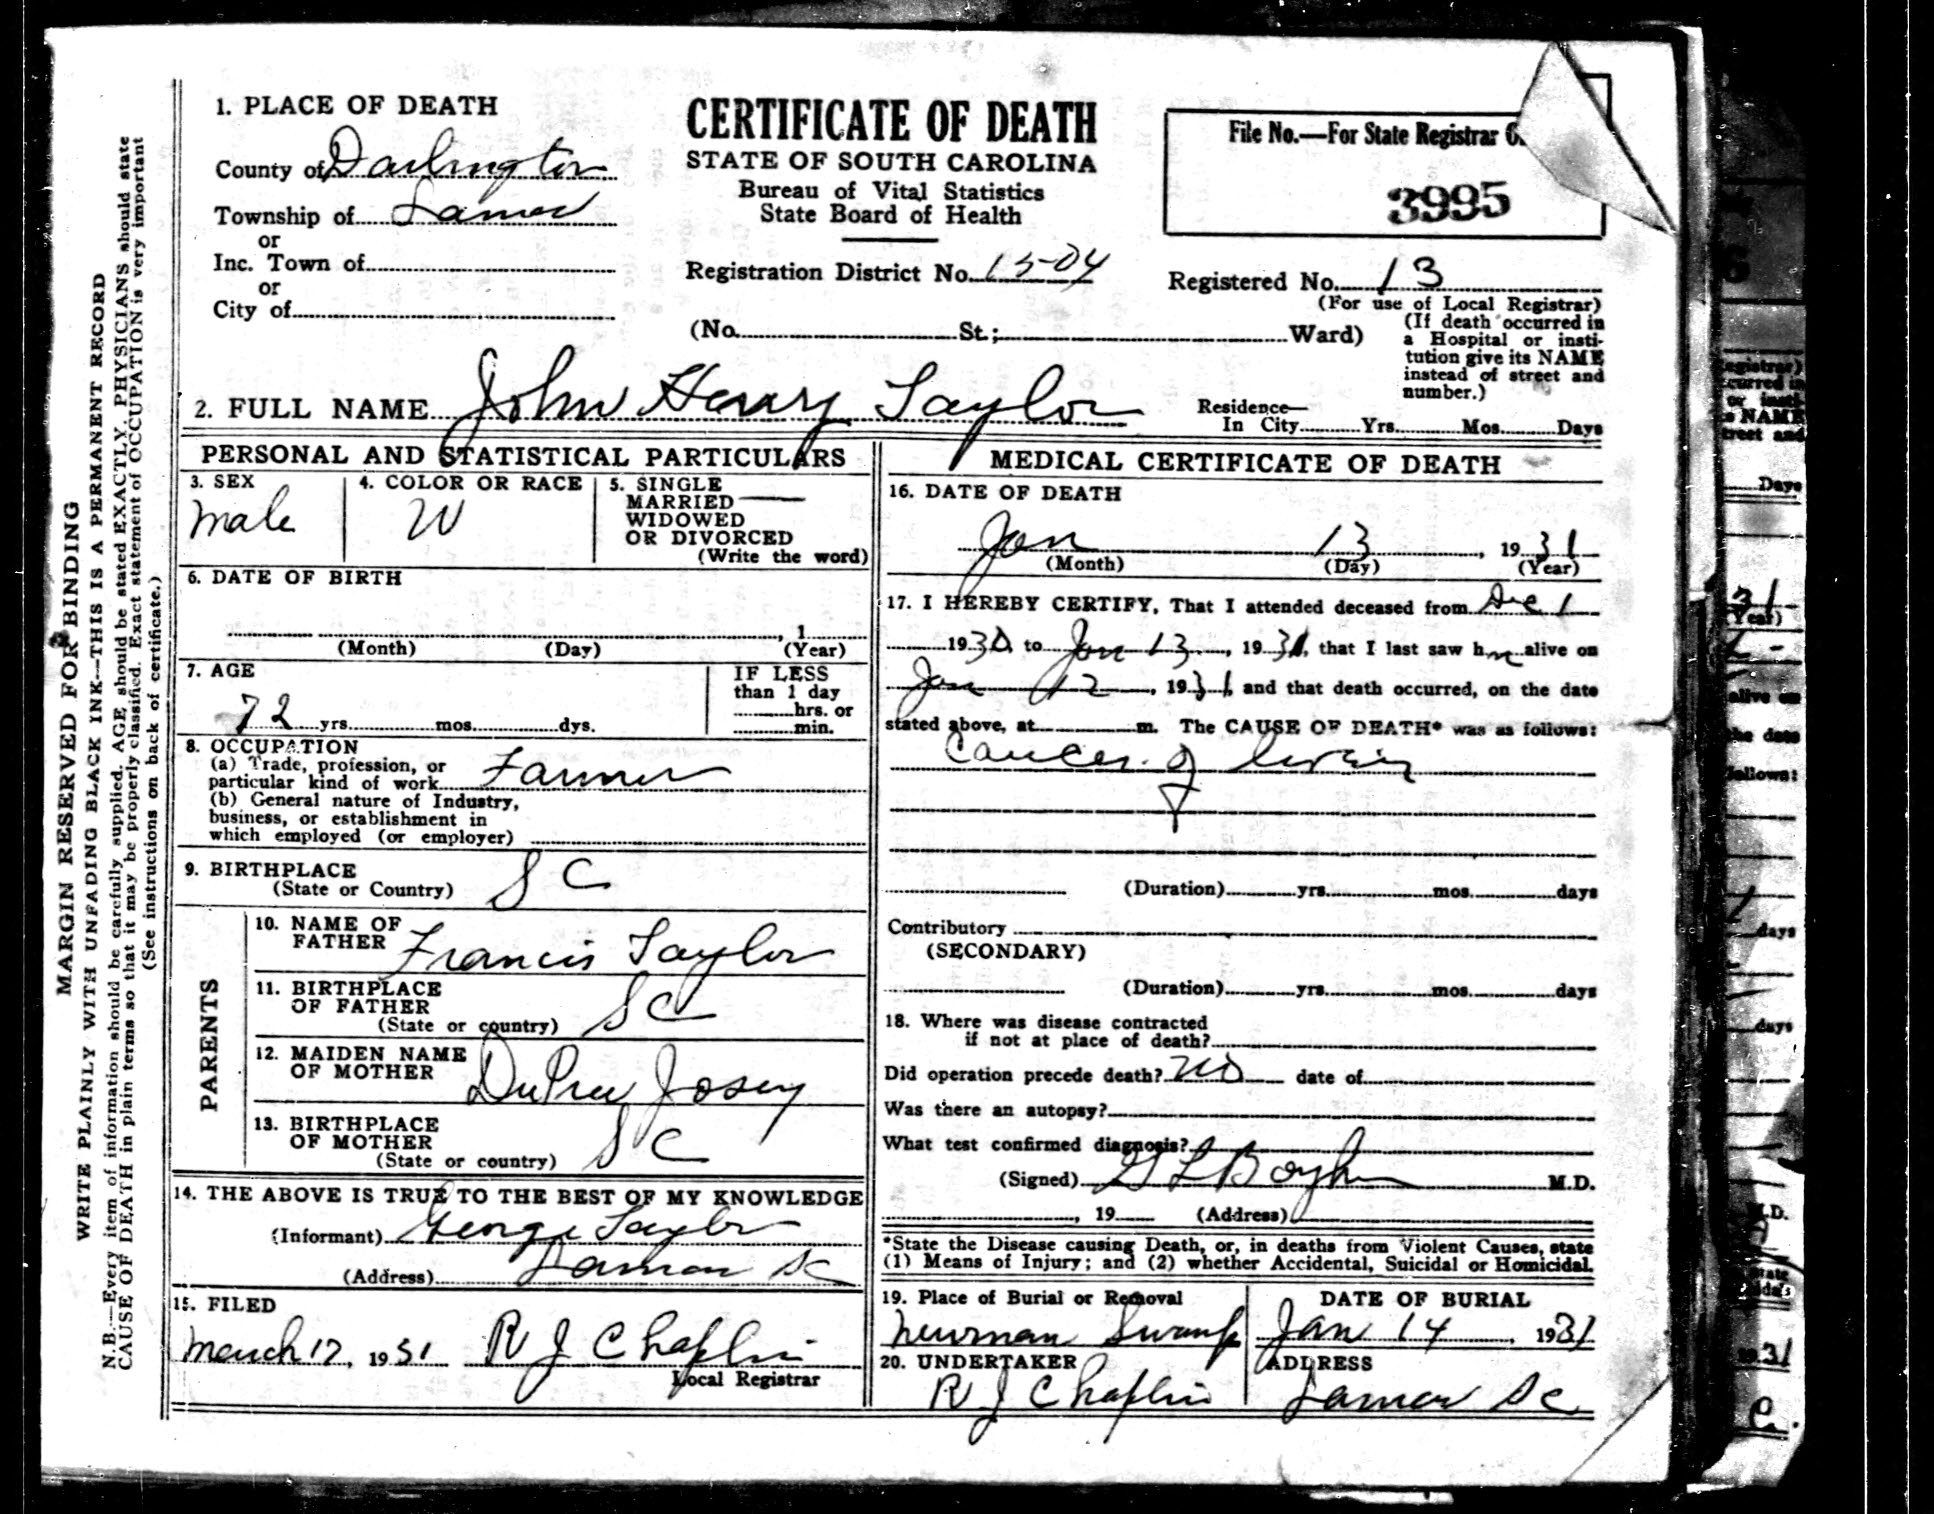 1. PLACE OF DEATH
County of Darlington
Township of Lamar
or
Inc. Town of
or
City of
CERTIFICATE OF DEATH
STATE OF SOUTH CAROLINA
Bureau of Vital Statistics
State Board of Health
Registration District No. 15-04
(No. St.; Ward)
File No.—For State Registrar O
3995
Registered No. 13
(For use of Local Registrar)
(If death occurred in
a Hospital or insti-
tution give its NAME
instead of street and
number.)
2. FULL NAME John Henry Taylor
Residence—
In City Yrs. Mos. Days
PERSONAL AND STATISTICAL PARTICULARS
3. SEX
Male
4. COLOR OR RACE
W
5. SINGLE
MARRIED
WIDOWED
OR DIVORCED
(Write the word)
6. DATE OF BIRTH
, 1
(Month) (Day) (Year)
7. AGE
72 yrs. mos. dys.
IF LESS
than 1 day
hrs. or
min.
8. OCCUPATION
(a) Trade, profession, or
particular kind of work Farmer
(b) General nature of Industry,
business, or establishment in
which employed (or employer)
9. BIRTHPLACE
(State or Country) SC
PARENTS
10. NAME OF
FATHER Francis Taylor
11. BIRTHPLACE
OF FATHER
(State or country) SC
12. MAIDEN NAME
OF MOTHER DuPree Josey
13. BIRTHPLACE
OF MOTHER
(State or country) SC
14. THE ABOVE IS TRUE TO THE BEST OF MY KNOWLEDGE
(Informant) George Taylor
(Address) Lamar SC
15. FILED
March 17, 1931 R J Chaplin
Local Registrar
MEDICAL CERTIFICATE OF DEATH
16. DATE OF DEATH
Jan 13, 1931
(Month) (Day) (Year)
17. I HEREBY CERTIFY, That I attended deceased from Dec 1
1930, to Jan 13, 1931, that I last saw him alive on
Jan 12, 1931, and that death occurred, on the date
stated above, at m. The CAUSE OF DEATH* was as follows:
Cancer of
(Duration) yrs. mos. days
Contributory
(SECONDARY)
(Duration) yrs. mos. days
18. Where was disease contracted
if not at place of death?
Did operation precede death? No date of
Was there an autopsy?
What test confirmed diagnosis?
(Signed) G L M.D.
, 19 (Address)
*State the Disease causing Death, or, in deaths from Violent Causes, state
(1) Means of Injury; and (2) whether Accidental, Suicidal or Homicidal.
19. Place of Burial or Removal
Newman Swamp
DATE OF BURIAL
Jan 14, 1931
20. UNDERTAKER
R J Chaplin
ADDRESS
Lamar SC
MARGIN RESERVED FOR BINDING
WRITE PLAINLY WITH UNFADING BLACK INK—THIS IS A PERMANENT RECORD
N.B.—Every item of information should be carefully supplied. AGE should be stated EXACTLY. PHYSICIANS should state
CAUSE OF DEATH in plain terms so that it may be properly classified. Exact statement of OCCUPATION is very important
(See instructions on back of certificate.)